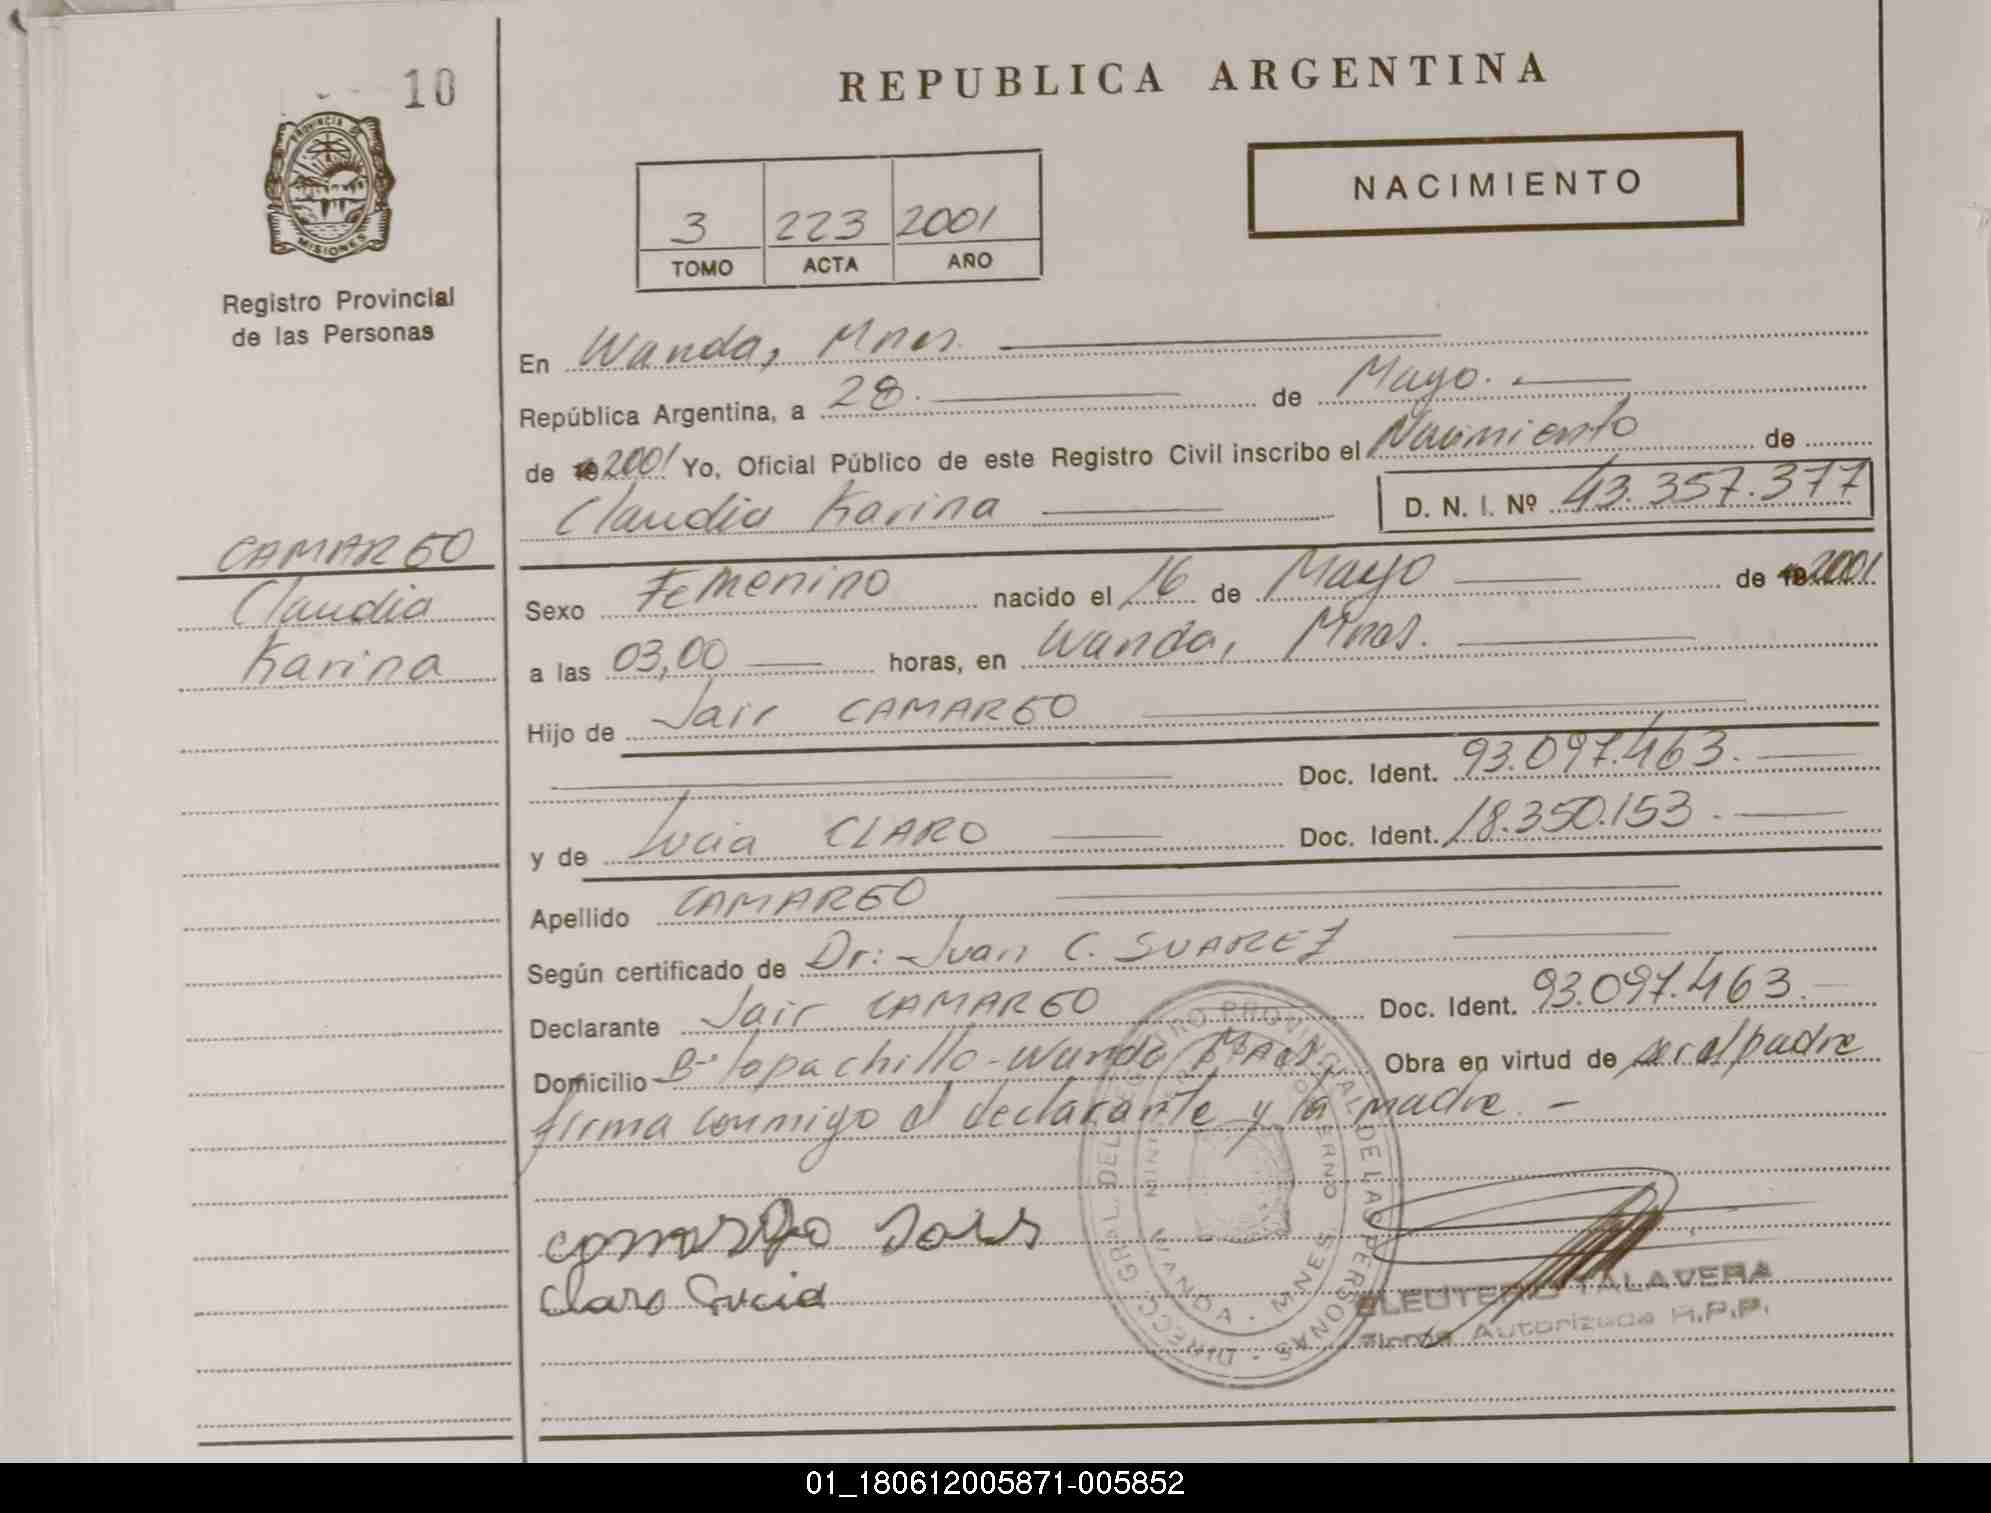 10
REPUBLICA ARGENTINA
PROVINCIA DE
MISIONES
NACIMIENTO
3 223 2001
TOMO ACTA AÑO
Registro Provincial
de las Personas
En Wanda, Mnes.
República Argentina, a 28. de Mayo.
de 2001 Yo, Oficial Público de este Registro Civil inscribo el Nacimiento de
Claudia Karina D. N. I. Nº 43.357.377
CAMARGO
Claudia
Karina
Sexo Femenino nacido el 16 de Mayo de 2001
a las 03,00 horas, en Wanda, Mnes.
Hijo de Jair CAMARGO
Doc. Ident. 93.097.463.
y de Lucia CLARO Doc. Ident. 18.350.153.
Apellido CAMARGO
Según certificado de Dr: Juan C. SUAREZ
Declarante Jair CAMARGO Doc. Ident. 93.097.463.
Domicilio Bº lapachillo-Wanda Mnes, Obra en virtud de ser el padre
firma conmigo el declarante y la madre. -
Camargo Jair
Claro Lucia
DIRECC. GRAL. DEL REGISTRO PROVINCIAL DE LAS PERSONAS
WANDA - MNES
ELEUTERIO TALAVERA
Firma Autorizada R.P.P.
01_180612005871-005852